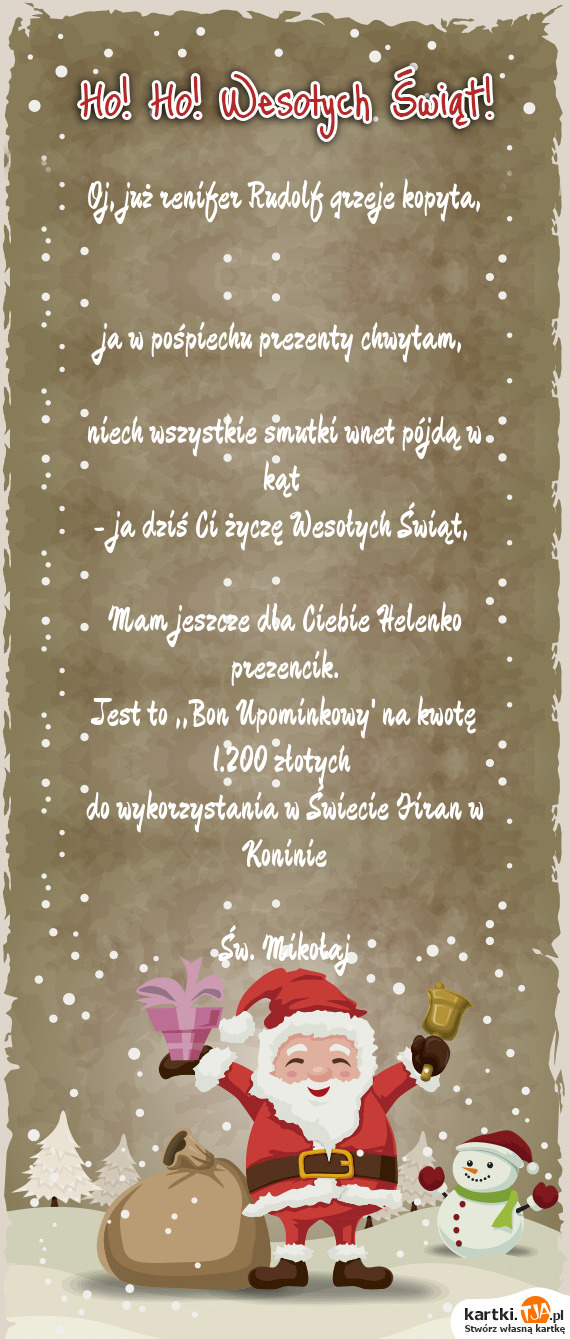 Ho! Ho! Wesołych Świąt!
Oj, już renifer Rudolf grzeje kopyta,
ja w pośpiechu prezenty chwytam,
niech wszystkie smutki wnet pójdą w
kąt
- ja dziś Ci życzę Wesołych Świąt,
Mam jeszcze dla Ciebie Helenko
prezencik.
Jest to ,,Bon Upominkowy' na kwotę
1.200 złotych
do wykorzystania w Świecie Firan w
Koninie
Św. Mikołaj
kartki.TJA.pl
Stwórz własną kartkę